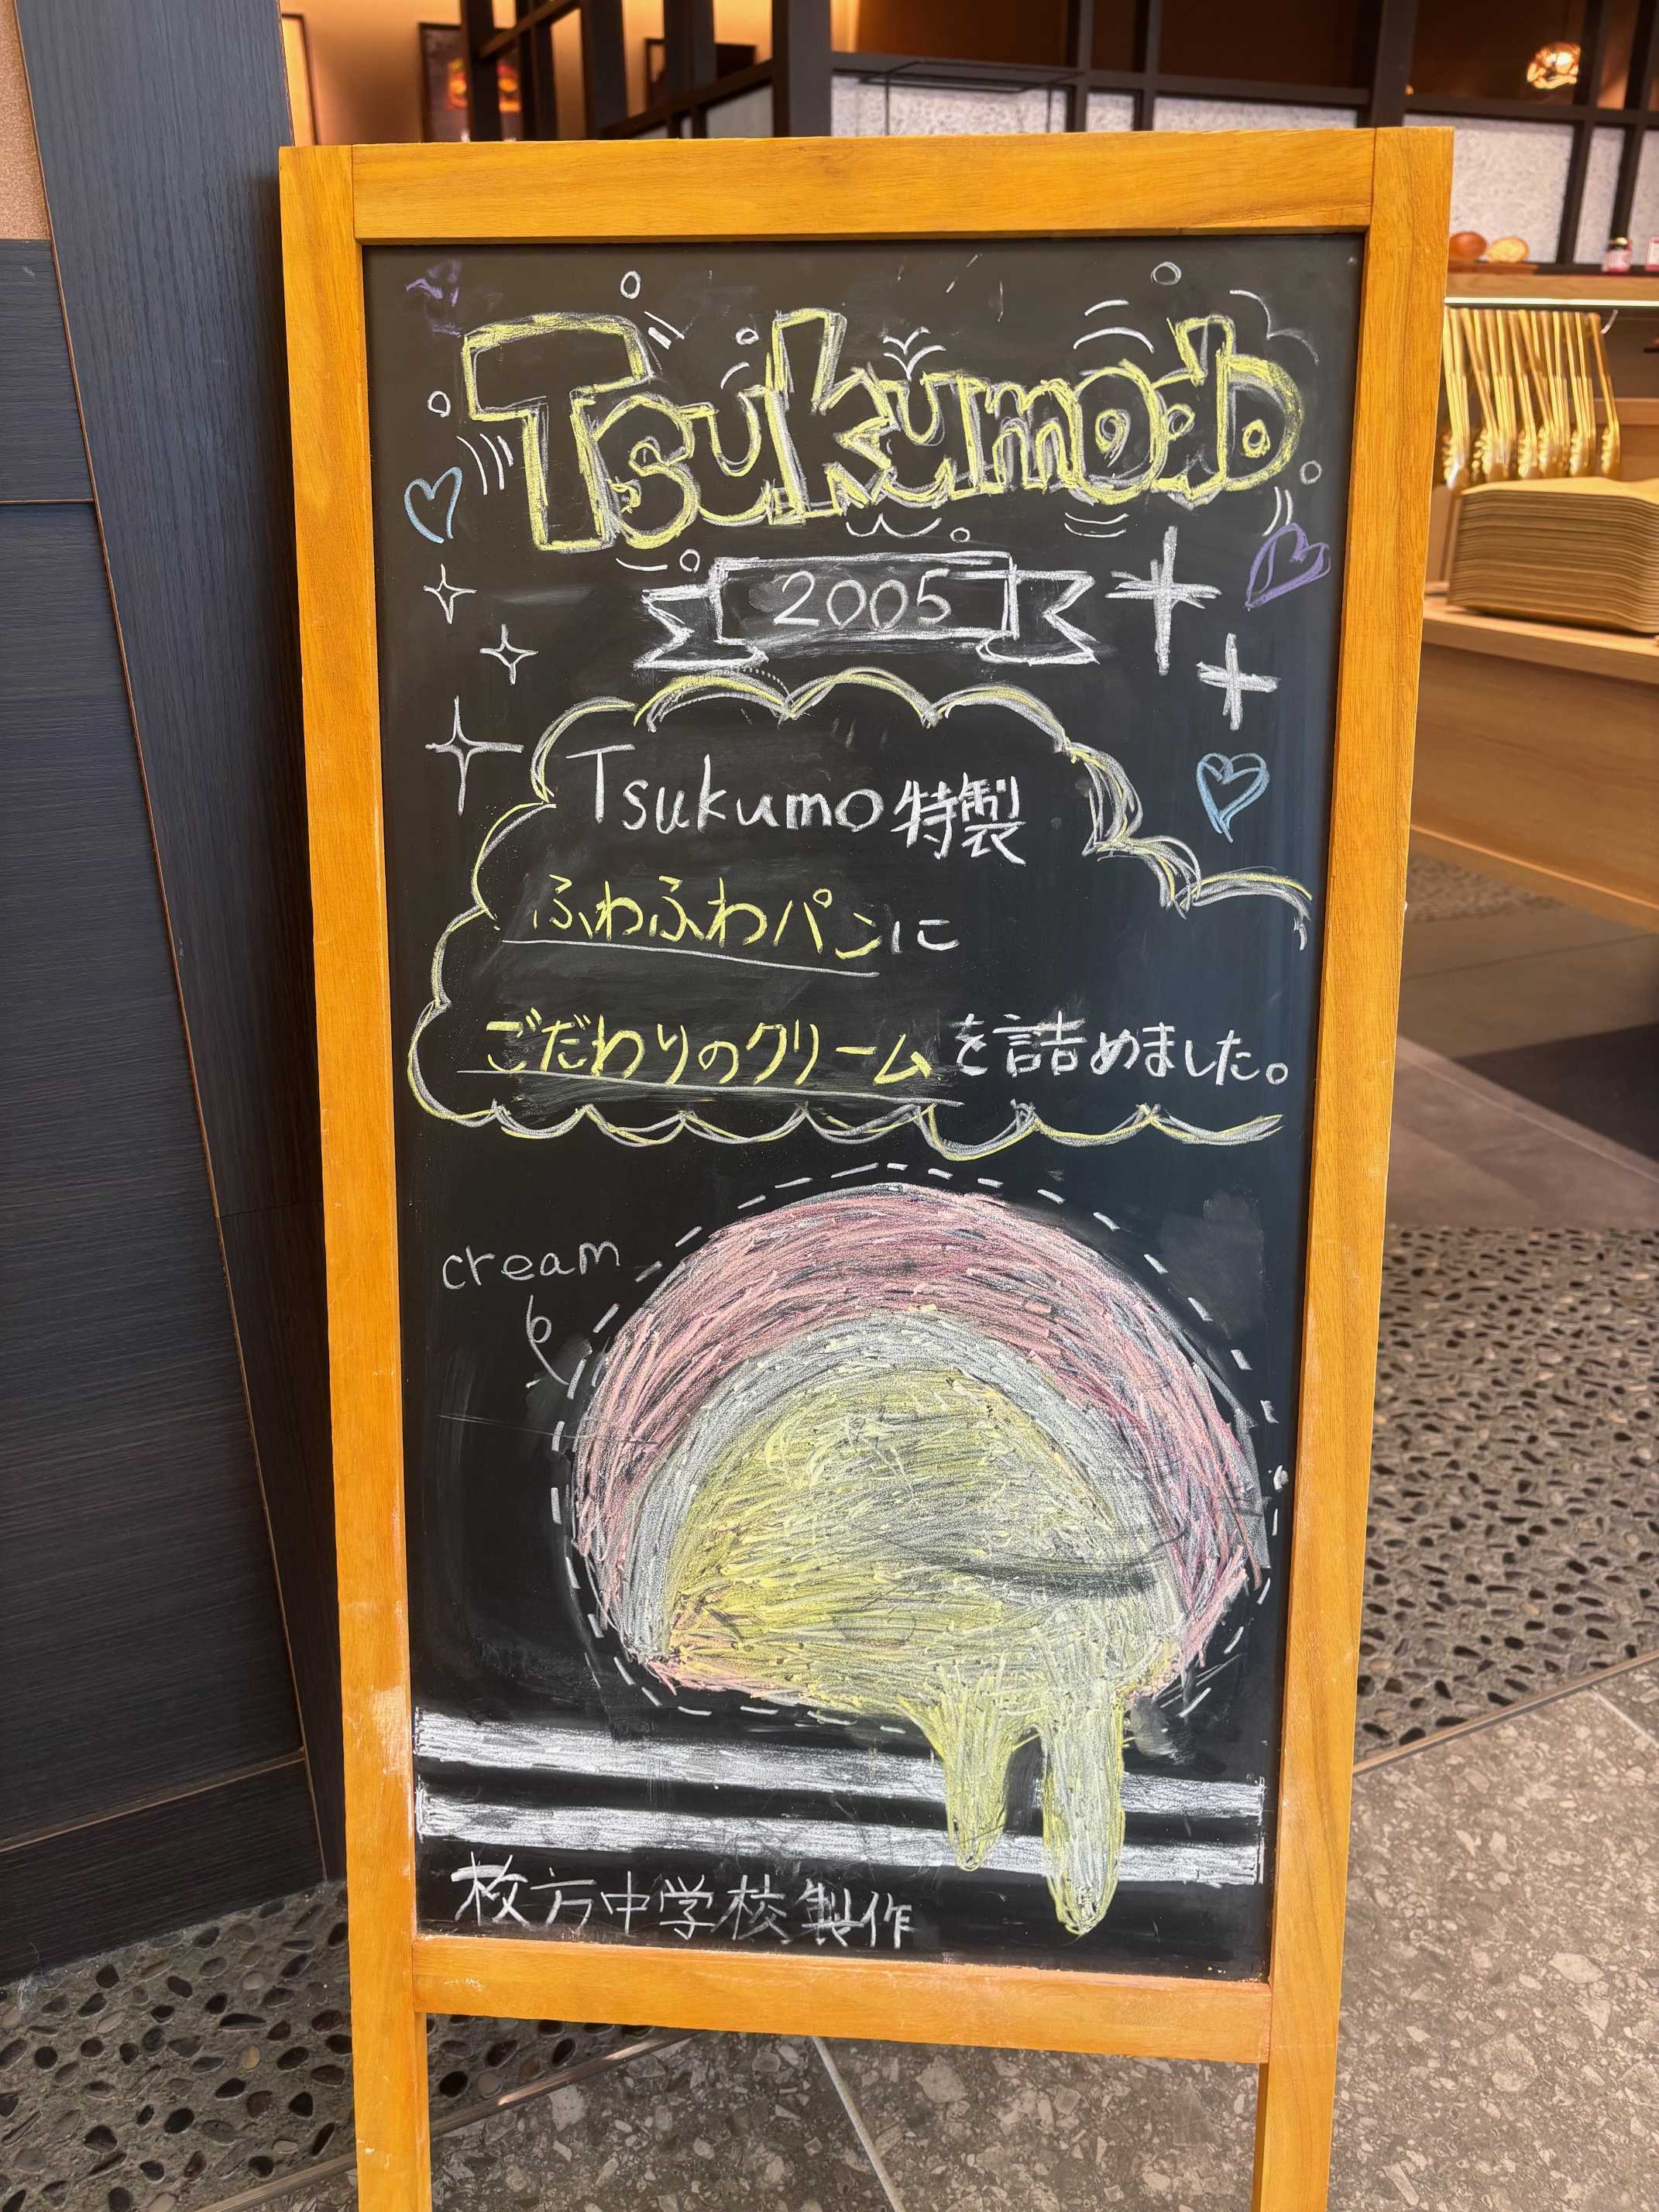 Tsukumodo
2005
Tsukumo特製
ふわふわパンに
ごだわりのクリームを詰めました。
cream
枚方中学校製作